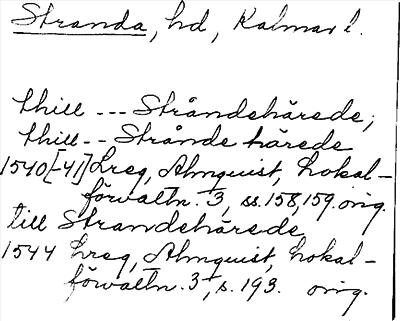 Stranda, hd, Kalmar l.
thill --- Stråndehärede,
thill -- Strånde härede
1540[-41] Lreg, Almquist, Lokal-
förvaltn. 3, ss. 158, 159. orig.
till Strandehärede
1544 Lreg, Almquist, Lokal-
förvaltn. 3, s. 193. orig.